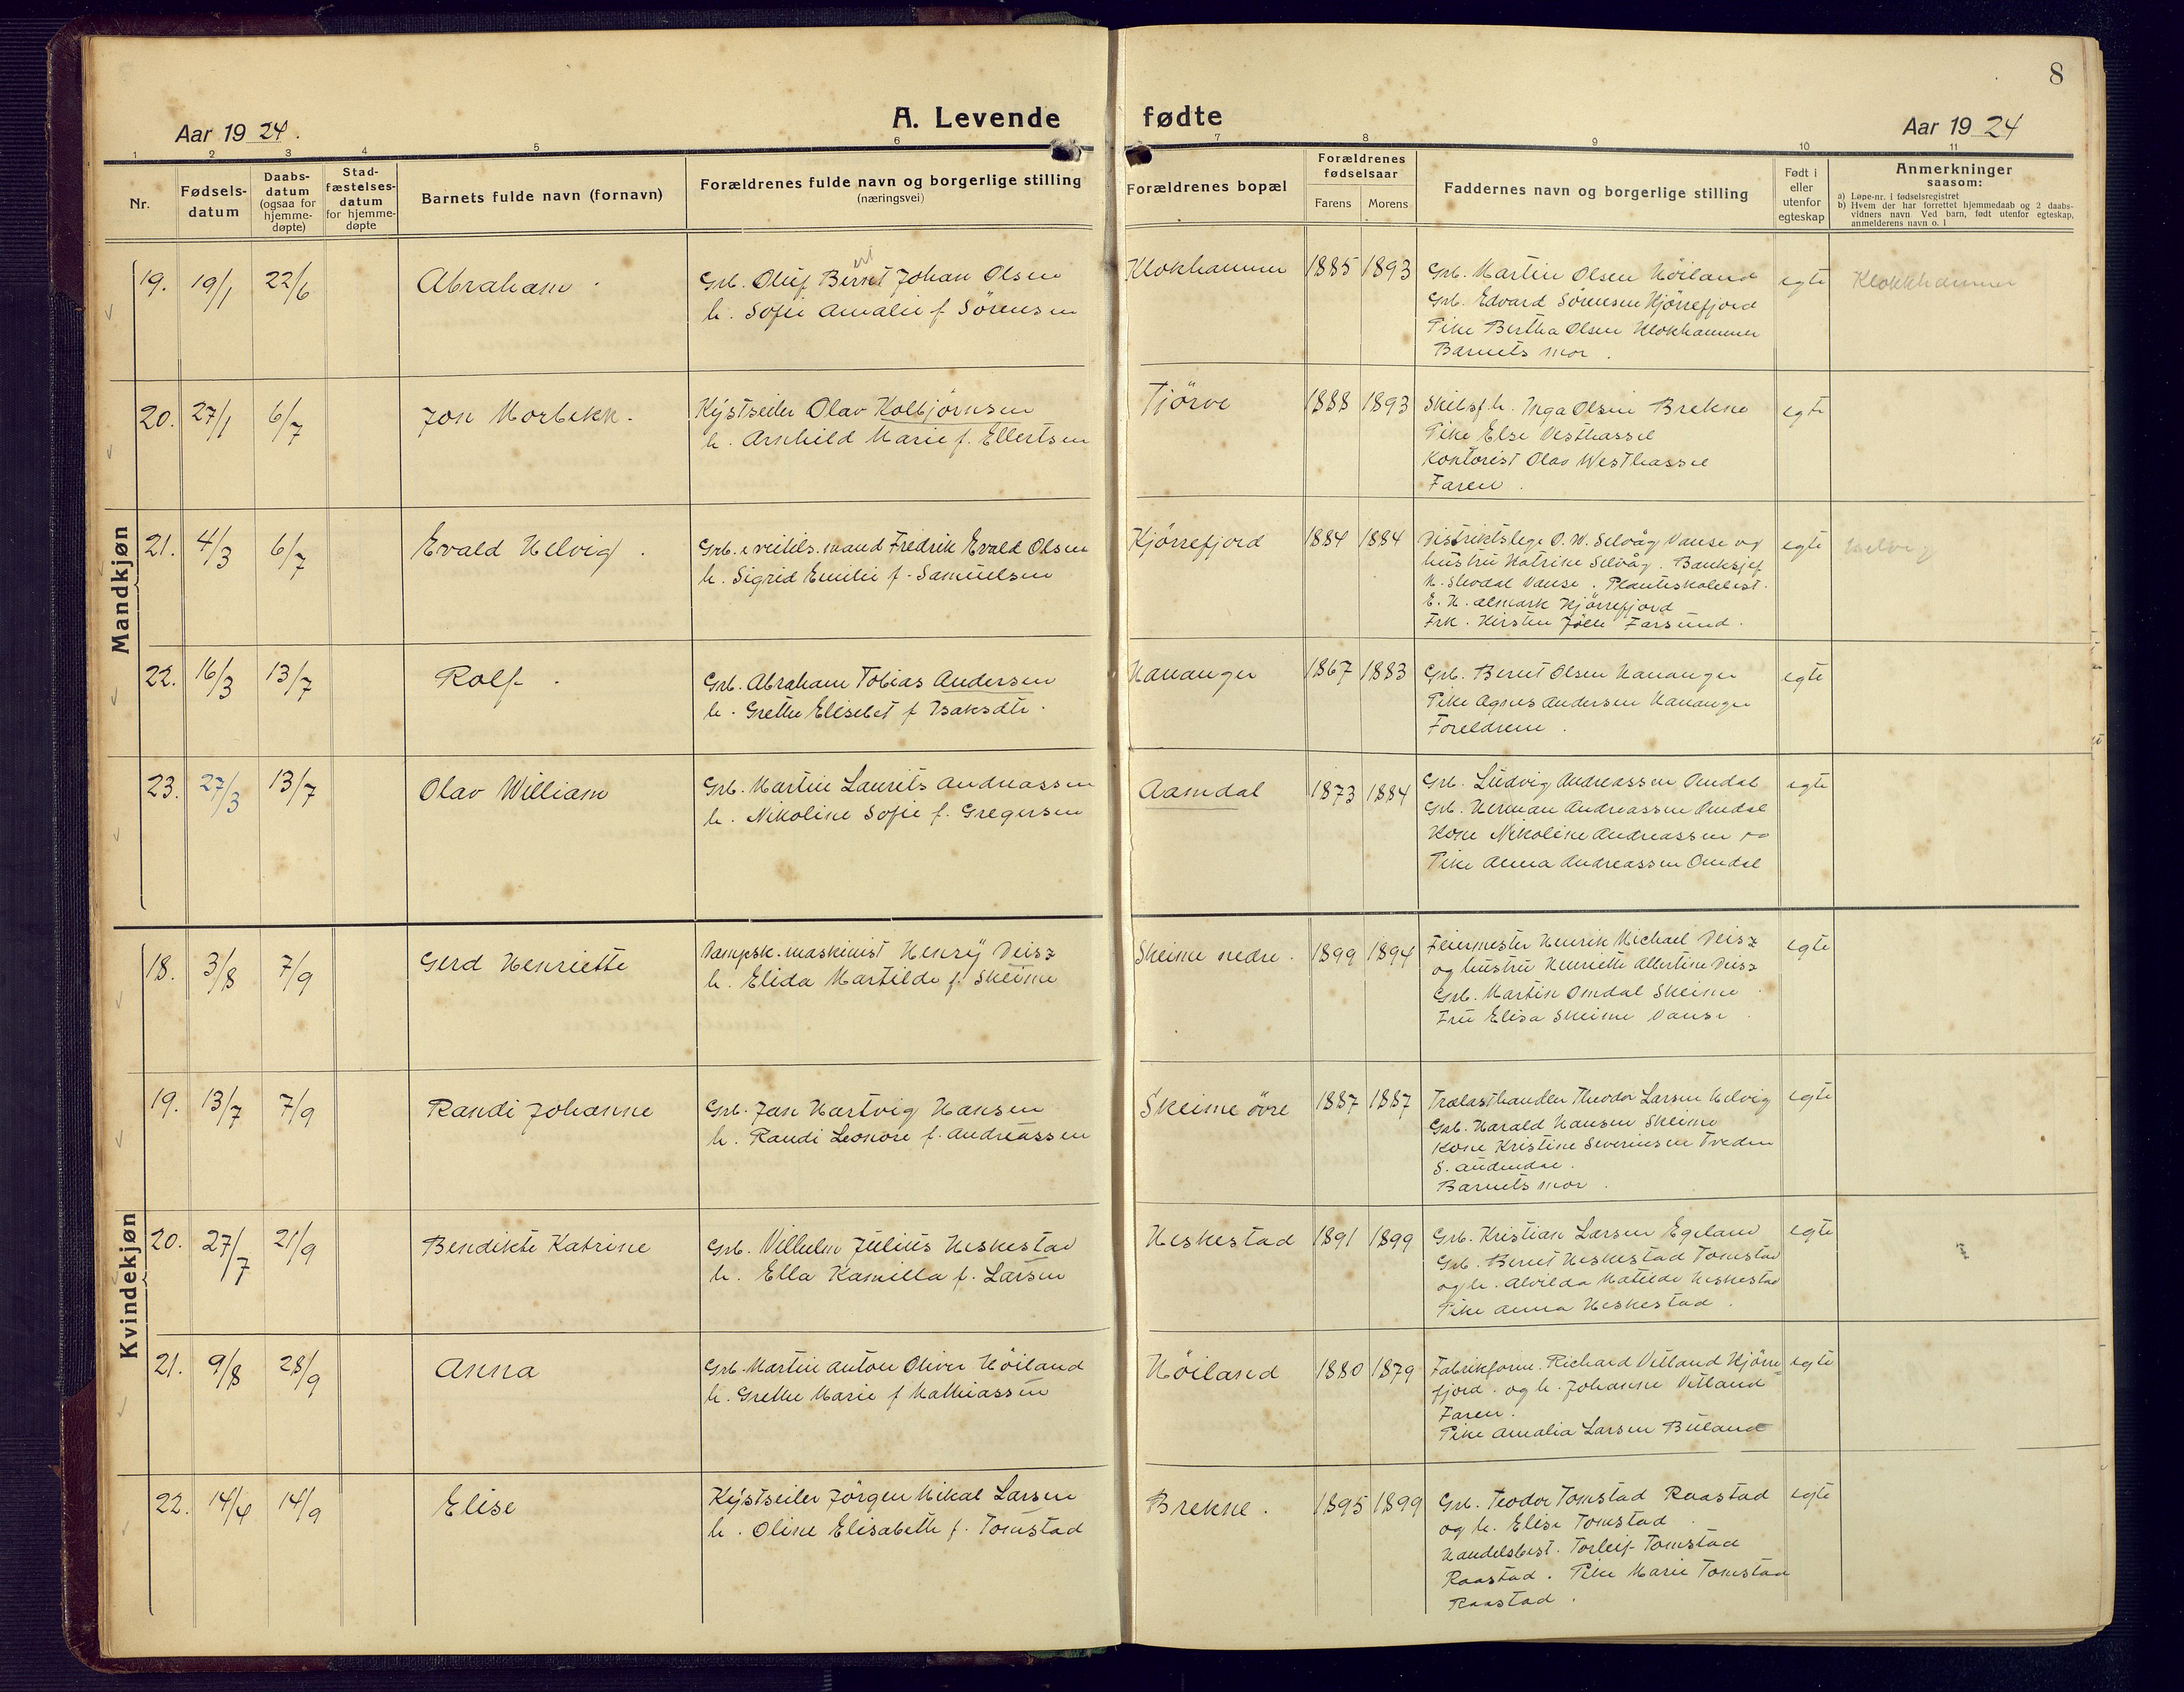 8
Aar 1924.
A. Levende fødte
Aar 1924
1 2 3 4 5 6 7 8 9 10 11
Nr.
Fødsels-
datum
Daabs-
datum
(ogsaa for
hjemme-
døpte)
Stad-
fæstelses-
datum
for hjemme-
døpte
Barnets fulde navn (fornavn)
Forældrenes fulde navn og borgerlige stilling
(næringsvei)
Forældrenes bopæl
Forældrenes
fødselsaar
Farens Morens
Faddernes navn og borgerlige stilling
Født i
eller
utenfor
egteskap
Anmerkninger
saasom:
a) Løpe-nr. i fødselsregistret
b) Hvem der har forrettet hjemmedaab og 2 daabs-
vidners navn Ved barn, født utenfor egteskap,
anmelderens navn o. l
Mandkjøn
19. 19/1 22/6
Abraham
Grb. Oluf Bernt Johan Olsen
h. Sofie Amalie f Sørensen
Klokhammer
1885 1893
Grb. Martin Olsen Høiland
Grb. Edvard Sørensen Kjörrefjord
Pike Bertha Olsen Klokhammer
Barnets mor.
egte
Klokkhammer
20. 27/1 6/7
Jon Morbekk.
Kystseiler Olav Kolbjørnsen
h. Arnhild Marie f. Ellertsen
Tjörve
1888 1893
Skibsf.h. Inga Olsen Brekne
Pike Else Vesthassel
Kontorist Olav Westhassel
Faren.
egte
21. 4/3 6/7
Evald Helvig.
Grb. Fredrik Evald Olsen
h. Sigrid Emilie f. Samuelsen
Kjörrefjord
1884 1884
Distriktslege O. W. Selvåg Vanse og
hustru Katrine Selvåg. Banksjef
K. Skodal Vanse. Planteskolebest.
E. K. Almark Kjörrefjord
Frk. Kirsten Jölle Farsund.
egte
Helvig
22. 16/3 13/7
Rolf.
Grb. Abraham Tobias Andersen
h. Grethe Elisebet f Isaksdtr.
Hananger
1867 1883
Grb. Bernt Olsen Hananger
Pike Agnes Andersen Hananger
Foreldrene.
egte
23. 27/3 13/7
Olav William
Grb. Martin Laurits Andreassen
h. Nikoline Sofie f. Gregersen
Aamdal
1873 1884
Grb. Ludvig Andreassen Omdal
Grb. Herman Andreassen Omdal
Kone Nikoline Andreassen
Pike Anna Andreassen Omdal
egte
Kvindekjøn
18. 3/8 7/9
Gerd Henriette
Dampsk. maskinist Henry Deisz
h. Elida Martilde f. Skeime
Skeime nedre.
1899 1894
Feiermester Henrik Michael Deisz
og hustru Henriette Albertine Deisz
Grb. Martin Omdal Skeime
Fru Elisa Skeime Vanse.
egte
19. 13/7 7/9
Randi Johanne
Grb. Jan Hartvig Hansen
h. Randi Leonore f. Andreassen
Skeime övre
1887 1887
Trælasthandler Theodor Larsen Helvig
Grb. Harald Hansen Skeime
Kone Kristine Severinsen Tveden
S. Audnedal.
Barnets mor.
egte
20. 27/7 21/9
Bendikte Katrine
Grb. Vilhelm Julius Heskestad
h. Ella Kamilla f. Larsen
Heskestad
1891 1899
Grb. Kristian Larsen Egeland
Grb. Bernt Heskestad Tomstad
og h. Alvilda Matilde Heskestad
Pike Anna Heskestad.
egte
21. 9/8 28/9
Anna
Grb. Martin Anton Oliver Höiland
h. Grethe Marie f Mathiassen
Höiland
1880 1879
Fabrikform. Richard Vetland Kjörre-
fjord. og h. Johanne Vetland
Faren.
Pike Amalia Larsen Büland
egte
22. 14/4 14/9
Elise
Kystseiler Jörgen Mikal Larsen
h. Oline Elisabeth f. Tomstad
Brekne.
1895 1899
Grb. Teodor Tomstad Raastad
og h. Elise Tomstad
Handelsbest. Torleif Tomstad
Raastad. Pike Marie Tomstad
Raastad.
egte